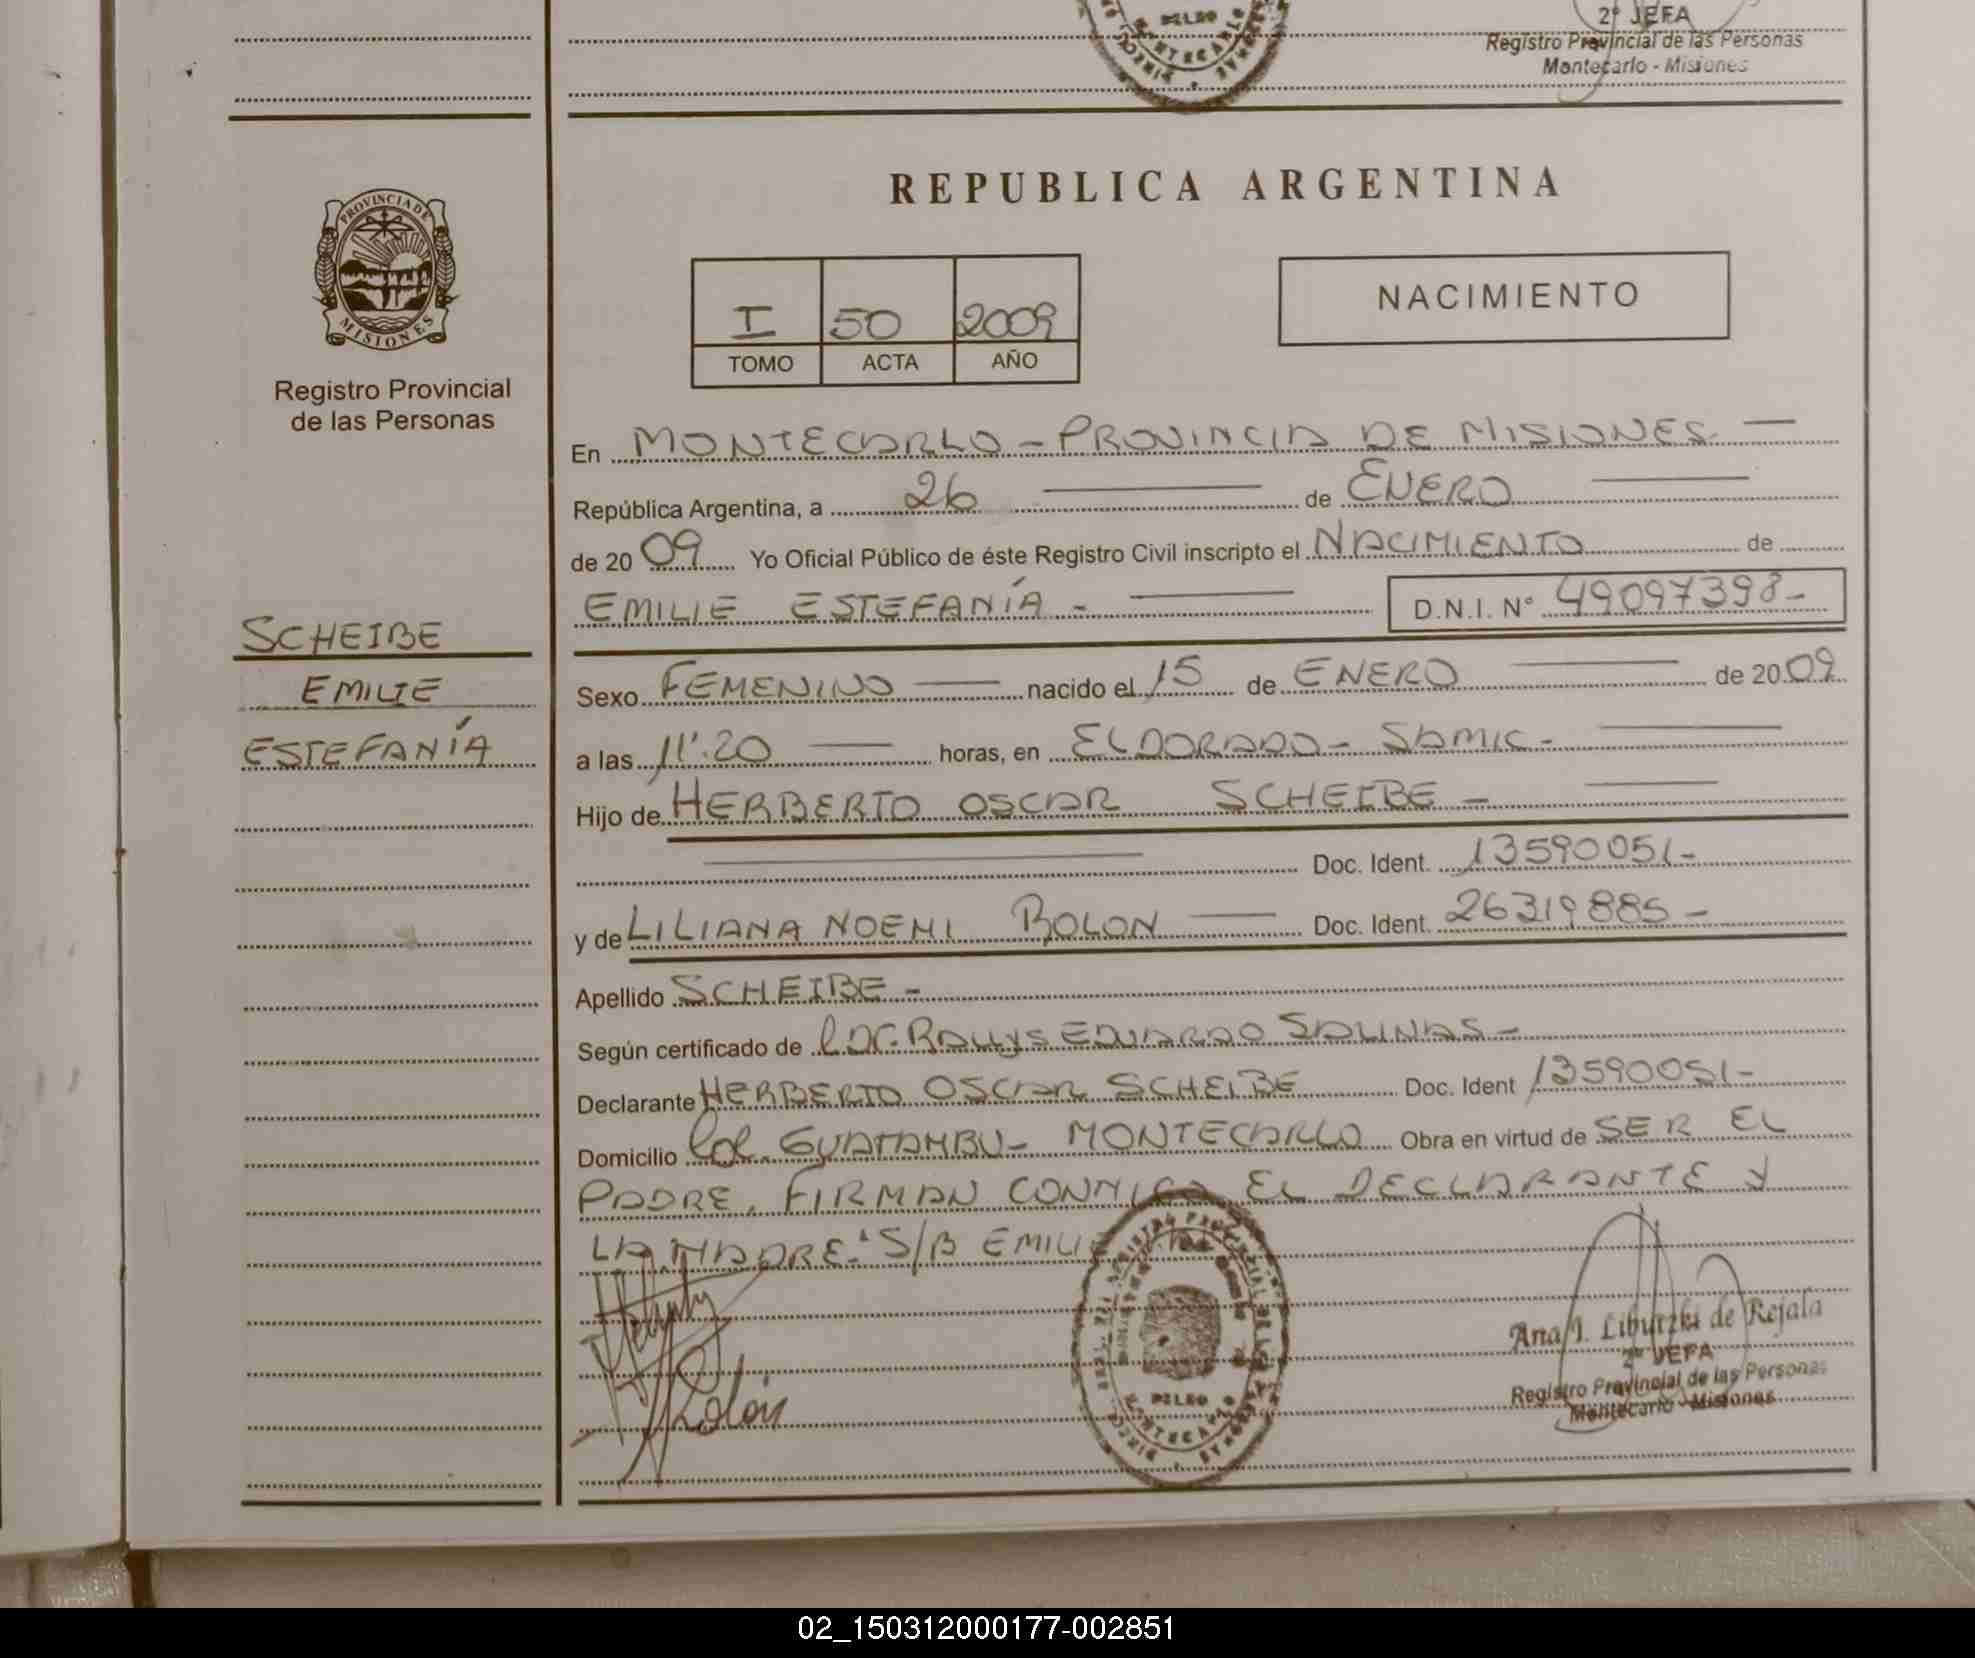 2º JEFA
Registro Provincial de las Personas
Montecarlo - Misiones
PROVINCIA DE
MISIONES
Registro Provincial
de las Personas
REPUBLICA ARGENTINA
I 50 2009
TOMO ACTA AÑO
NACIMIENTO
En MONTECARLO - PROVINCIA DE MISIONES
República Argentina, a 26 de ENERO
de 2009 Yo Oficial Público de éste Registro Civil inscripto el NACIMIENTO de
EMILIE ESTEFANÍA - D.N.I. Nº 49097398-
SCHEIBE
EMILIE
ESTEFANÍA
Sexo FEMENINO nacido el 15 de ENERO de 2009
a las 11'.20 horas, en ELDORADO - SAMIC -
Hijo de HERBERTO OSCAR SCHEIBE -
Doc. Ident. 13590051-
y de LILIANA NOEMI BOLON Doc. Ident. 26319885 -
Apellido SCHEIBE -
Según certificado de EDUARDO SALINAS -
Declarante HERBERTO OSCAR SCHEIBE Doc. Ident 13590051-
Domicilio Col. GUATAMBU - MONTECARLO Obra en virtud de SER EL
PADRE. FIRMAN CONMIGO EL DECLARANTE Y
LA MADRE. S/B EMILIE
Bolón
Ana I. de Rejala
2º JEFA
Registro Provincial de las Personas
Montecarlo - Misiones
02_150312000177-002851